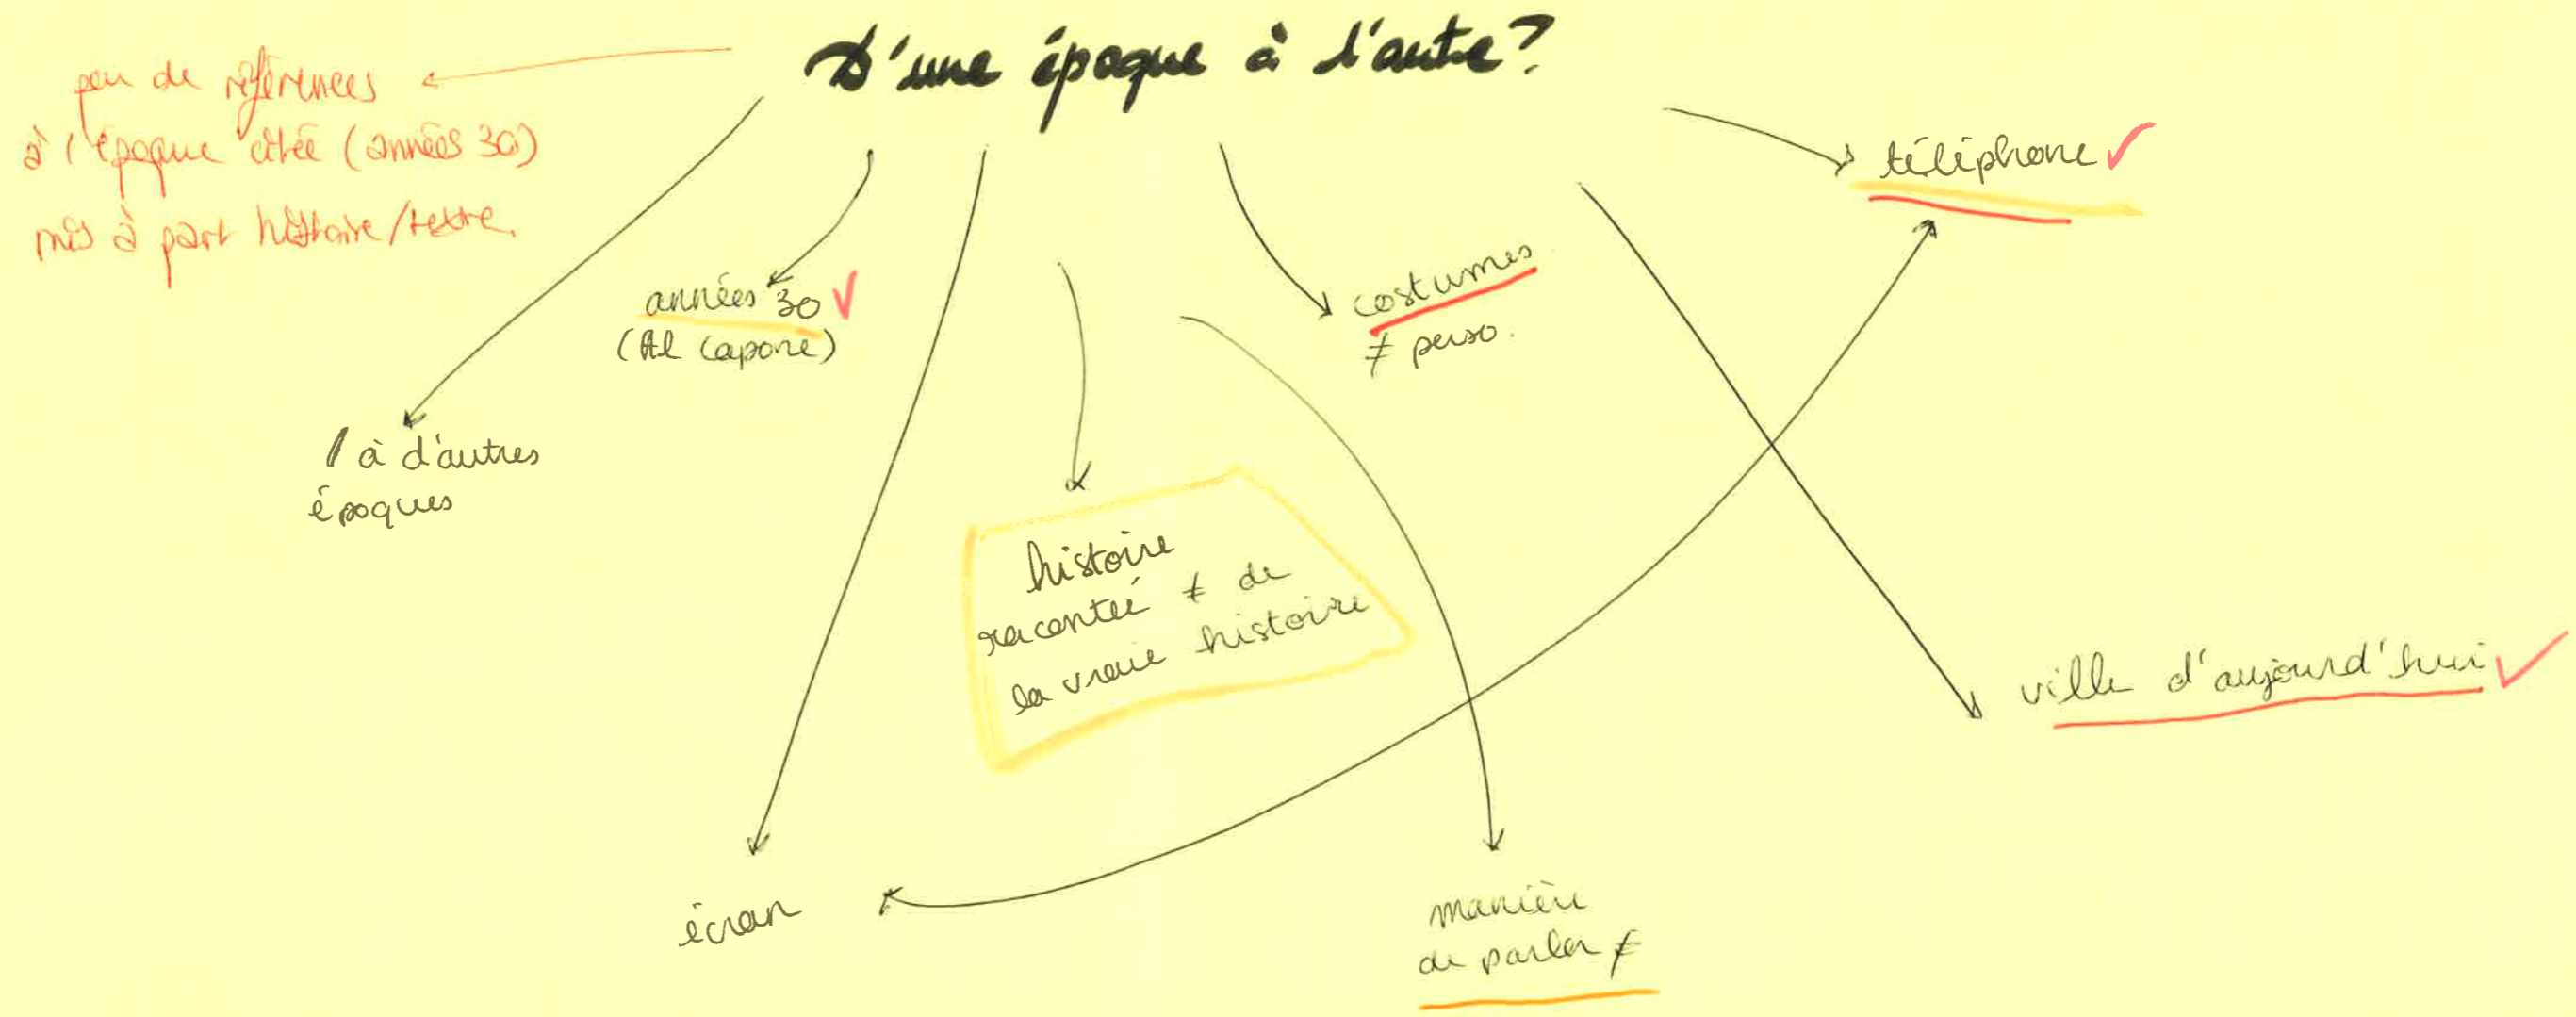 D'une époque à l'autre?
peu de références
à l'époque citée (années 30)
mis à part histoire/texte.
téléphone
années 30
(Al Capone)
costumes
≠ perso.
/ à d'autres
époques
histoire
racontée ≠ de
la vraie histoire
ville d'aujourd'hui
écran
manière
de parler ≠